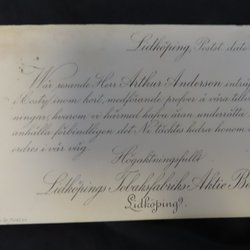 Lidköping, Postst. dato
Vår resande Herr Arthur Anderson inträf
i Eder by inom kort, medförande profver å våra till
ningar, hvarom vi härmed hafva äran underrätta
anhålla förbindligen det Ni täcktes hedra honom
ordres i vår väg.
Högaktningsfullt
Lidköpings Tobaksfabriks Aktie Bo
Lidköping.